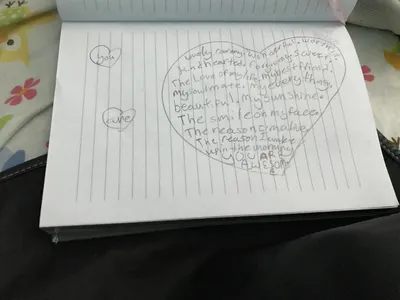 You
are
lovely, caring, wonderful, worm
kind hearted, funny, sweet
The Love of my life, my best friend
my soulmate, my everything,
beautiful, My sunshine
The smile on my face
The reason smalive
The reason I wake
up in the morning
YOU ARE
AWESOME